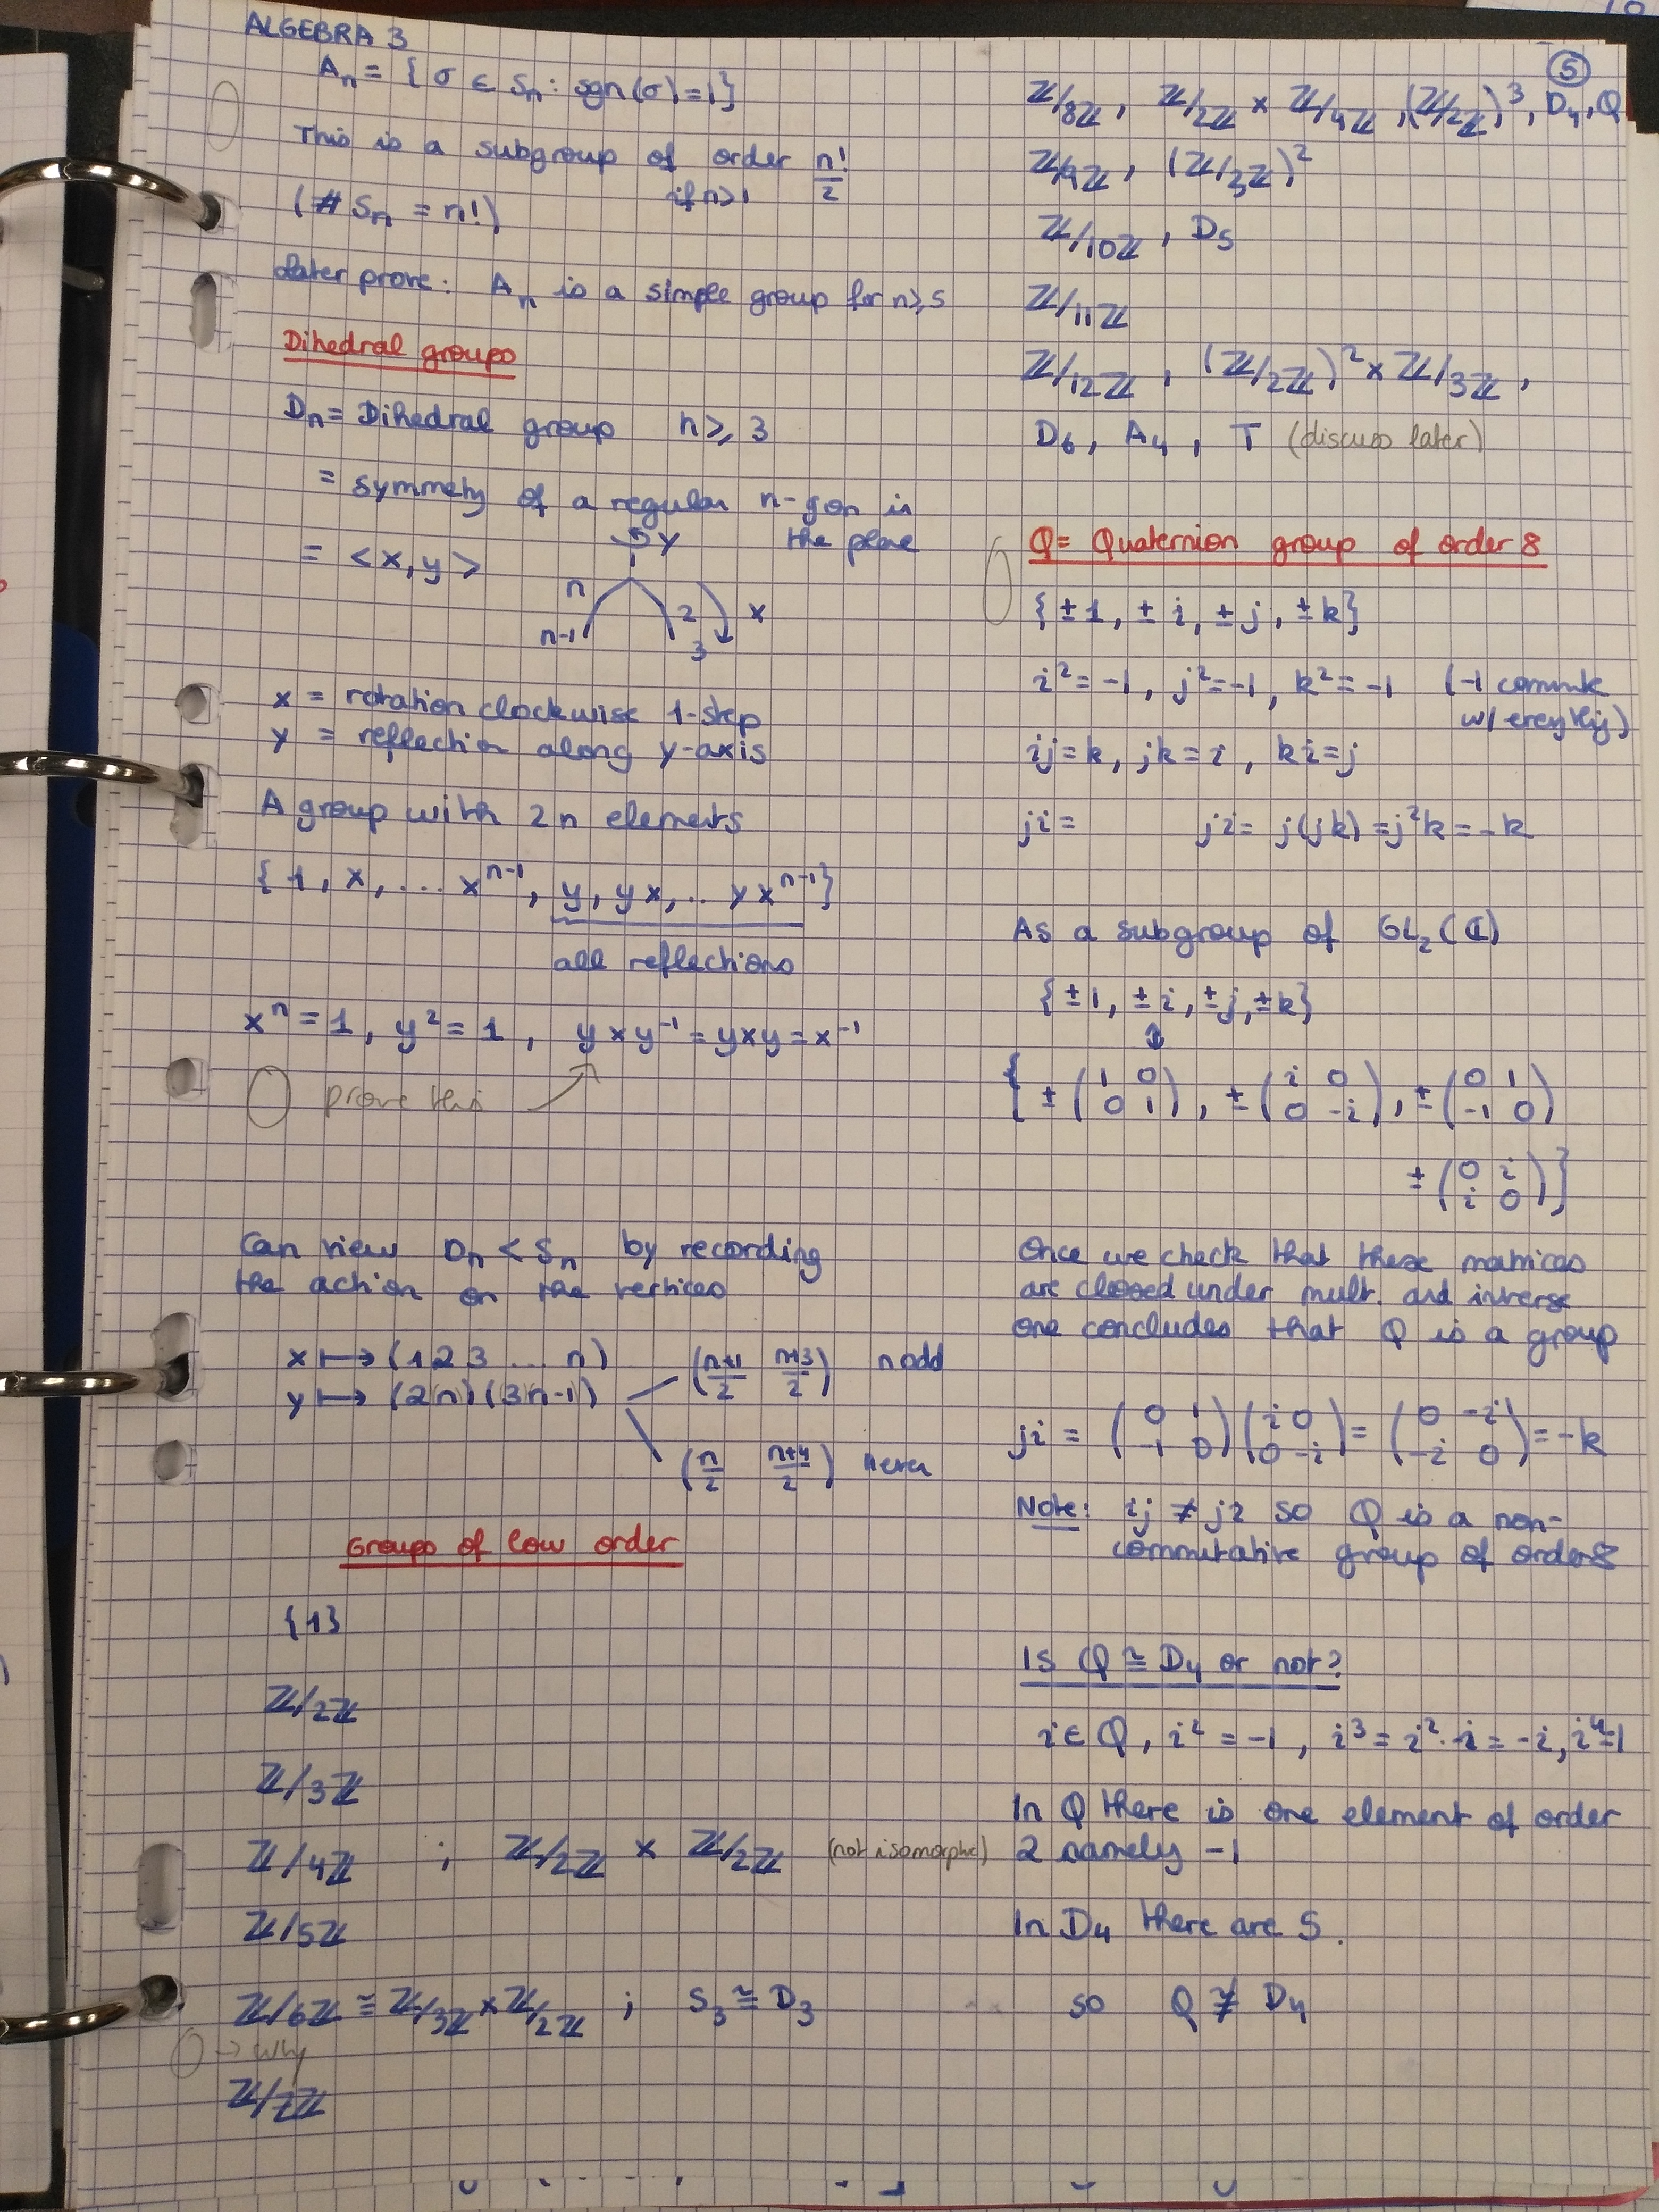 ALGEBRA 3
Aₙ = { σ ∈ Sₙ : sgn(σ) = 1 }
This is a subgroup of order n!/2
if n>1
(# Sₙ = n!)
Later prove: Aₙ is a simple group for n⩾5
Dihedral groups
Dₙ = Dihedral group n ⩾ 3
= symmetry of a regular n-gon is
the plane
= <x, y>
y
n
n-1
2
3
x
x = rotation clockwise 1-step
y = reflection along y-axis
A group with 2n elements
{ 1, x, ... xⁿ⁻¹, y, yx, .. yxⁿ⁻¹}
all reflections
xⁿ = 1, y² = 1, yxy⁻¹ = yxy = x⁻¹
prove this
Can view Dₙ < Sₙ by recording
the action on the vertices
x ↦ (1 2 3 ... n)
y ↦ (2 n) (3 n-1)
(n+1/2 n+3/2) n odd
(n/2 n+4/2) n even
Groups of low order
{1}
ℤ/2ℤ
ℤ/3ℤ
ℤ/4ℤ ; ℤ/2ℤ × ℤ/2ℤ (not isomorphic)
ℤ/5ℤ
ℤ/6ℤ ≅ ℤ/3ℤ × ℤ/2ℤ ; S₃ ≅ D₃
→ why
ℤ/7ℤ
5
ℤ/8ℤ, ℤ/2ℤ × ℤ/4ℤ, (ℤ/2ℤ)³, D₄, Q
ℤ/9ℤ, (ℤ/3ℤ)²
ℤ/10ℤ, D₅
ℤ/11ℤ
ℤ/12ℤ, (ℤ/2ℤ)² × ℤ/3ℤ,
D₆, A₄, T (discuss later)
Q = Quaternion group of order 8
{ ±1, ± i, ± j, ± k}
i² = -1, j² = -1, k² = -1 (-1 commute
w/ everything)
ij = k, jk = i, ki = j
ji = ji = j(jk) = j²k = -k
As a subgroup of GL₂(ℂ)
{ ±1, ± i, ± j, ± k}
↕
{ ± (1 0; 0 1), ± (i 0; 0 -i), ± (0 1; -1 0)
± (0 i; i 0) }
Once we check that these matrices
are closed under mult. and inverse
one concludes that Q is a group
ji = (0 1; -1 0)(i 0; 0 -i) = (0 -i; -i 0) = -k
Note: ij ≠ ji so Q is a non-
commutative group of order 8
Is Q ≅ D₄ or not?
i ∈ Q, i² = -1, i³ = i²·i = -i, i⁴=1
In Q there is one element of order
2 namely -1
In D₄ there are 5.
so Q ≇ D₄